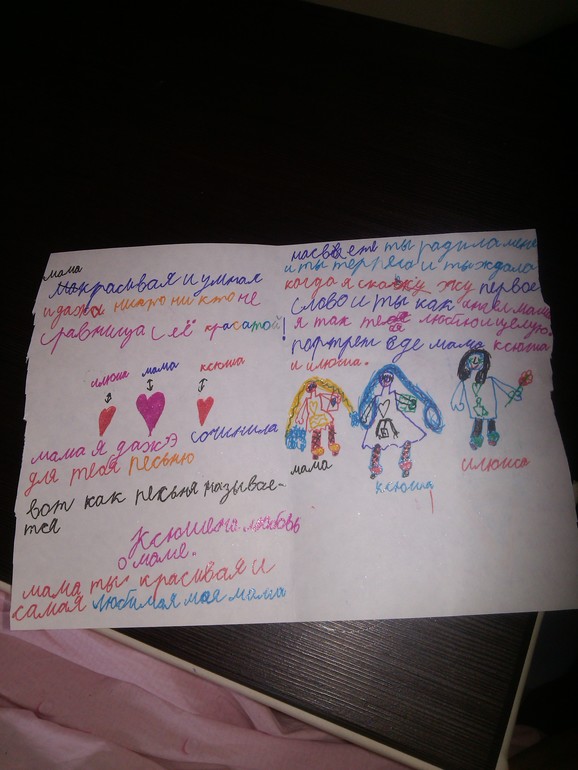 мама
красивая и умная
и даже никто никто не
сравница с её красатой!
илюша мама ксюша
мама я дажэ сочинила
для тебя песню
вот как песня называе-
тся
Ксюшена любовь
о маме.
мама ты красивая и
самая любимая мая мама
на свете ты радила меня
и ты терпела и ты ждала
когда я скажу первое
слово и ты как ангел мама
я так тебя люблю и целую.
портрет где мама ксюша
и илюша.
мама
ксюша
илюша